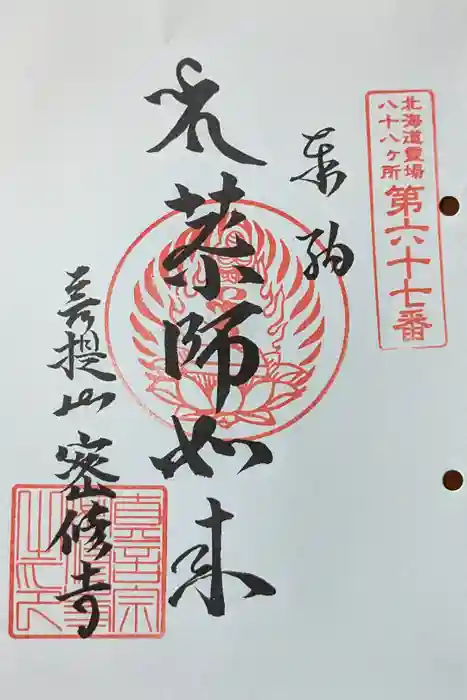 北海道靈場
八十八ヶ所
第六十七番
薬師如来
菩提山 密修寺
真言宗
密修寺
之印